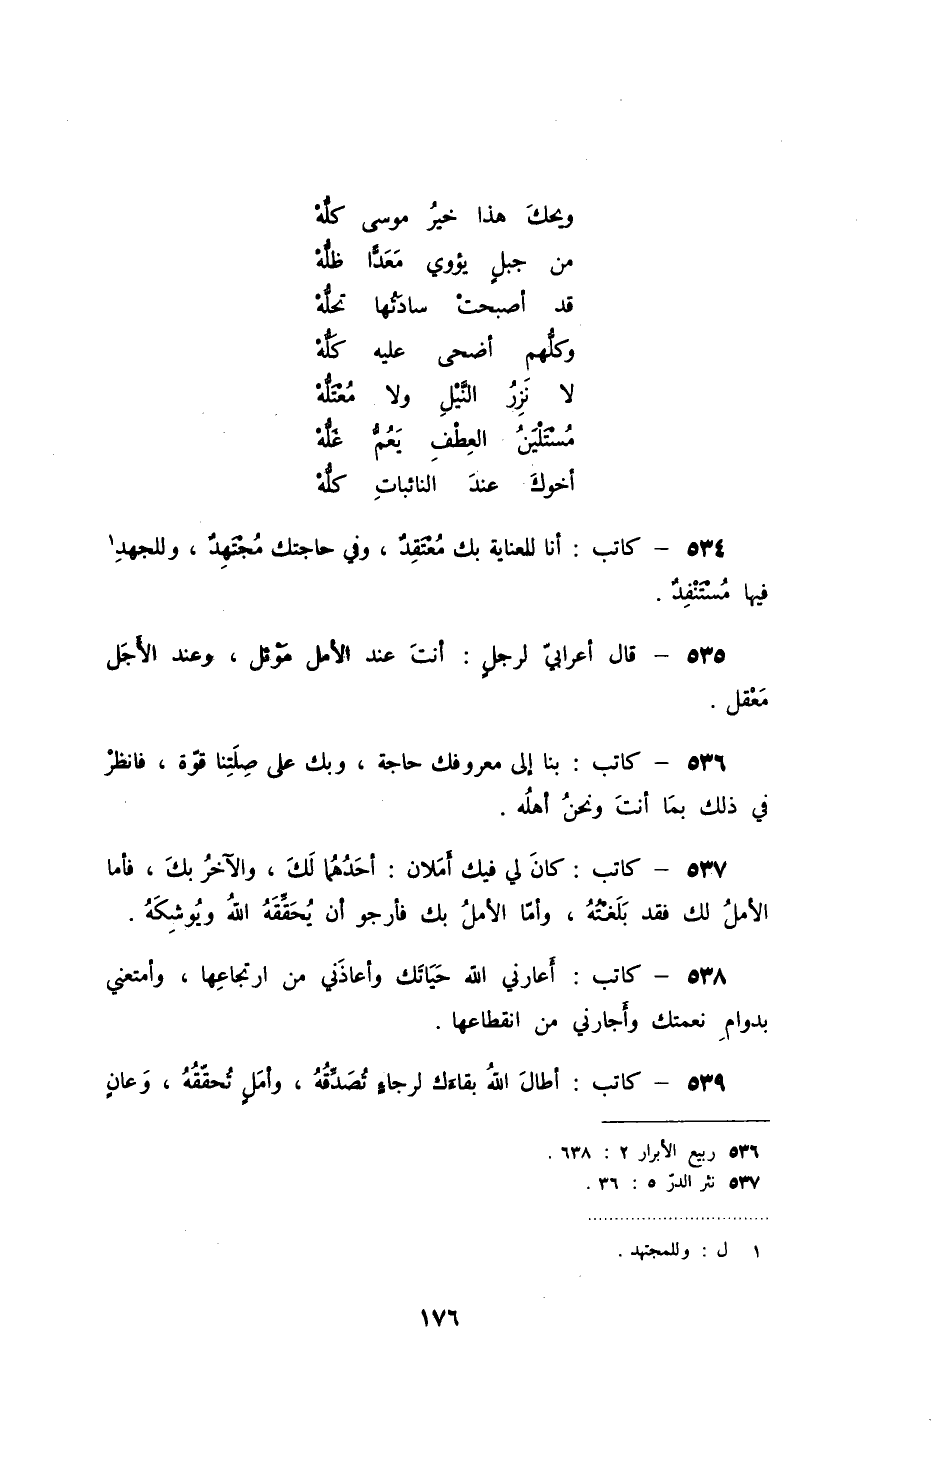 ويحكَ هذا خيرُ موسى كلُّهْ
من جبلٍ يؤوي مَعَدًّا ظلُّهْ
قد أصبحتْ سادَتُها تحلُّهْ
وكلُّهم أضحى عليه كَلُّهْ
لا نَزِرُ النَّيْلِ ولا مُعْتَلُّهْ
مُسْتَلْيَنُ العِطْفِ يَعُمُّ غَلُّهْ
أخوكَ عندَ النائباتِ كلُّهْ
٥٣٤ – كاتب : أنا للعناية بك مُعْتَقِدٌ ، وفي حاجتك مُجْتَهِدٌ ، وللجهدِ١
فيها مُسْتَنْفِدٌ .
٥٣٥ – قال أعرابيّ لرجلٍ : أنتَ عند الأمل مَوْئل ، وعند الأَجَل
مَعْقل .
٥٣٦ – كاتب : بنا إلى معروفك حاجة ، وبك على صِلَتِنا قوّة ، فانظرْ
في ذلك بمَا أنتَ ونحنُ أهلُه .
٥٣٧ – كاتب : كانَ لي فيك أَمَلان : أحَدُهُما لَكَ ، والآخرُ بكَ ، فأما
الأملُ لك فقد بَلَغْتُهُ ، وأمّا الأملُ بك فأرجو أن يُحَقِّقَهُ اللهُ ويُوشِكَهُ .
٥٣٨ – كاتب : أَعارني الله حَيَاتَك وأعاذَني من ارتجاعِها ، وأمتعني
بدوامِ نعمتك وأَجارني من انقطاعها .
٥٣٩ – كاتب : أطالَ اللهُ بقاءك لرجاءٍ تُصَدِّقُهُ ، وأمَلٍ تُحقّقُهُ ، وَعانٍ
٥٣٦ ربيع الأبرار ٢ : ٦٣٨ .
٥٣٧ نثر الدرّ ٥ : ٣٦ .
١ ل : وللمجتهد .
١٧٦